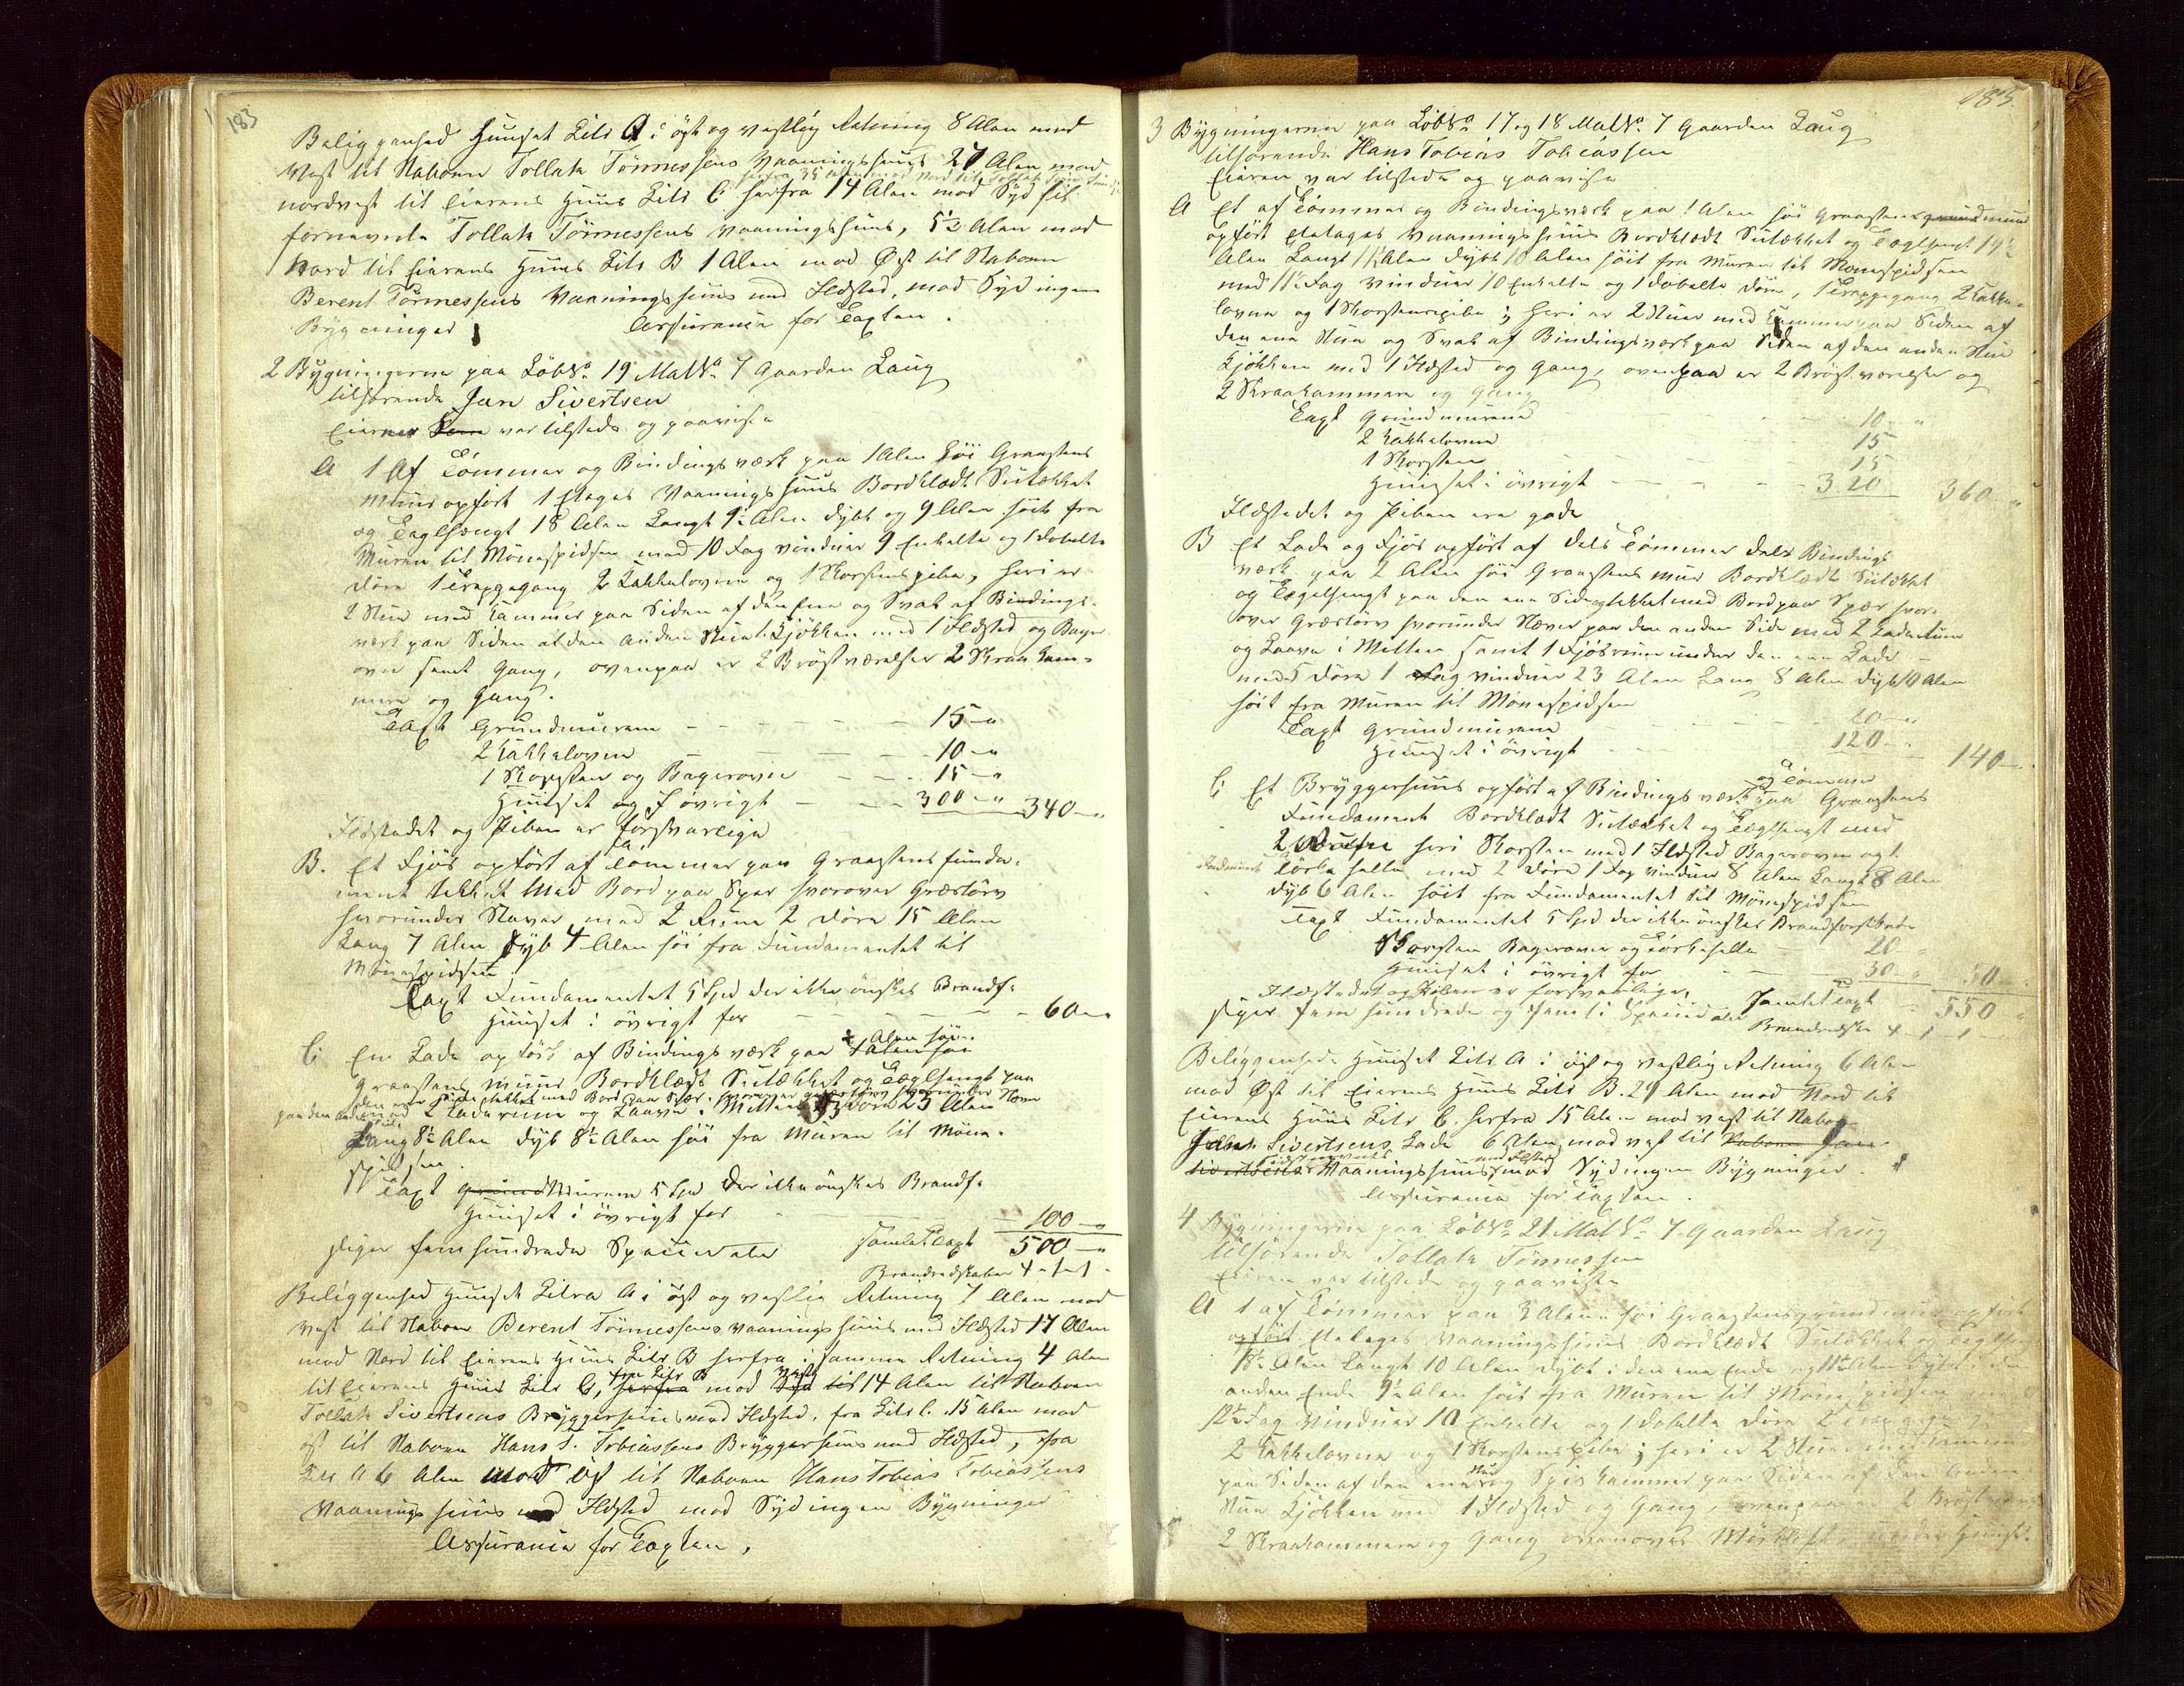 183
Beliggenhed Huuset Litr A i øst og vestlig Retning 8 Alen mod
Vest til Naboen Tollak Tönnessens Vaaningshuus 27 Alen mod
herfra 35 Alen mod Nord til Tollak
nordvest til Eierens Huus Litr C herfra 14 Alen mod Syd til
fornævnte Tollak Tönnessens Vaaningshuus, 5½ Alen mod
Nord til Eierens Huus Litr B 1 Alen mod Øst til Naboen
Berent Tönnessens Vaaningshuus med Ildsted, mod Syd ingen
Bygninger Assurance for Taxten.
2 Bygningerne paa LöbNo 19 MatNo 7 Gaarden Laug
tilhørende Jan Sivertsen
Eieren var tilstede og paaviste
A 1 Af Tömmer og Bindingsværk paa 1 Alen höi Graasteens
Muur opfört 1 Etages Vaaningshuus Bordklædt Sutækket
og Teglhængt 18 Alen Langt 9½ Alen dybt og 9 Alen höit fra
Muren til Mönespidsen med 10 Fag vinduer 9 Enkelte og 1 dobelte
döre 1 Trappegang 2 Kakkelovne og 1 Skorsteenspibe, heri er
2 Stuer med Kammer paa Siden af den Ene og Sval af Bindings-
værk paa Siden af den anden Stue 1 Kjökken med 1 Ildsted og Bager
ovn samt Gang, ovenpaa er 2 Bröstværelser 2 Skraakam-
mere og Gang.
Taxt Grundmurene - - - - 15 - "
2 Kakkelovne - - - - 10 - "
1 Skorsteen og Bagerovn - - - 15 - "
Huuset i övrigt - - - 300 - " 340 - "
Ildstedet og Piben er forsvarlige
B. Et Fjös opfört af Tömmer paa Graasteens funda-
ment tækket med Bord paa Spær hvorover Græstörv
hvorunder Næver, med 2 Rum 2 döre 15 Alen
Lang 7 Alen dyb 4 Alen höi fra Fundamentet til
Mönespidsen.
Taxt Fundamentet 5 Spd der ikke önskes Brandf.
Huuset i övrigt for - - - - - 60 - "
C. En Lade opfört af Bindingsværk paa Alen höi
Graasteens muur Bordklædt Sutækket og Teglhængt paa
den ene Side tækket med Bord paa Spær hvorover Græstörv hvorunder Næver
paa den anden Side med 2 Laderum og Laave i Midten 3 döre 23 Alen
Lang 8½ Alen dyb 8½ Alen höi fra Muren til Möne-
spidsen.
Taxt Murene 5 Spd der ikke önskes Brandf.
Huuset i övrigt for 100 - "
siger femhundrede Speciedaler Samlet Taxt 500 - "
Brandredskaber 4 - 1 - 1 -
Beliggenhed Huuset Litra A i øst og vestlig Retning 7 Alen mod
Vest til Naboen Berent Tönnessens Vaaningshuus med Ildsted 17 Alen
mod Nord til Eierens Huus Litr B herfra i samme Retning 4 Alen
fra Litr B Vest
til Eierens Huus Litr C, herfra mod Syd til 14 Alen til Naboen
Tollak Sivertsens Bryggerhuus med Ildsted, fra Litr C. 15 Alen mod
øst til Naboen Hans T. Tobiassens Bryggerhuus med Ildsted, fra
Litr A 6 Alen mod Øst til Naboen Hans Tobias Tobiassens
Vaaningshuus med Ildsted mod Syd ingen Bygninger
Assurance for Taxten,
185
3 Bygningerne paa LöbNo 17 og 18 MatNo 7 Gaarden Laug
tilhørende Hans Tobias Tobiassen
Eieren var tilstede og paaviste
A Et af Tömmer og Bindingsværk paa 1 Alen höi Graasteens grundmuur
opfört Etages Vaaningshuus Bordklædt Sutækket og Teglhængt 19½
Alen Langt 11½ Alen dybt 10 Alen höit fra Muren til Mönespidsen
med 11½ Fag Vinduer 10 Enkelte og 1 dobelte döre, 1 Trappegang 2 Kakke-
lovne og 1 Skorsteenspibe; heri er 2 Stuer med Kammer paa Siden af
den ene Stue og Sval af Bindingsværk paa Siden af den anden Stue
Kjökken med 1 Ildsted og Gang, ovenpaa er 2 Bröstværelser og
2 Skraakammere og Gang
Taxt Grundmurene 10 - "
2 Kakkelovne 15
1 Skorsteen 15
Huuset i övrigt - - - - 320 360 - "
Ildstedet og Piben ere gode
B Et Lade og Fjös opfört af dels Tömmer dels Bindings
værk paa 2 Alen höi Graasteens muur Bordklædt Sutækket
og Tegelhængt paa den ene Side og tækket med Bord paa Spær hvor-
over Græstörv hvorunder Næver paa den anden Side med 2 Laderum
og Laave i Midten samt 1 Fjösrum under den ene Lade -
med 5 döre 1 Fag vinduer 23 Alen Lang 8 Alen dyb 10 Alen
höit fra Muren til Mönespidsen
Taxt Grundmurene 20 - "
Huuset i övrigt 120 - " 140 -
og Tömmer
C Et Bryggerhuus opfört af Bindingsværk paa Graasteens
Fundament Bordklædt Sutækket og Teglhængt med
2 heri Skorsteen med 1 Ildsted Bagerovn og 1
Törkehelle med 2 döre 1 Fag vinduer 8 Alen Langt 8 Alen
dyb 6 Alen höit fra Fundamentet til Mönespidsen
Taxt Fundamentet 5 Spd der ikke önskes Brandforsikret
Skorsteen Bagerovn og Törkehelle 20 -
Huuset i övrigt for - - 30 - " 50 -
Ildstedet og Piben er forsvarlige, Samlet Taxt 550 "
siger fem hundrede og femti Speciedaler Brandredskaber 4 - 1 - 1 -
Beliggenhed Huuset Litr A i øst og vestlig Retning 6 Alen
mod Øst til Eierens Huus Litr B. 29 Alen mod Nord til
Eierens Huus Litr C. herfra 15 Alen mod vest til Naboen
Jans Sivertsens Lade 6 Alen mod vest til Naboen Jan
sidstnævntes med Ildsted
Sivertsens Vaaningshuus mod Syd ingen Bygninger
Assurance for Taxten.
4 Bygningerne paa LöbNo 21 MatNo 7 Gaarden Laug
tilhørende Tollak Tönnessen
Eieren var tilstede og paaviste
A 1 af Tömmer paa 3 Alen höi Graasteensgrundmuur opfört
opfört Etages Vaaningshuus Bordklædt Sutækket og Teglhængt
18½ Alen Langt 10 Alen dybt i den ene Ende og 11½ Alen dybt i den
anden Ende 9½ Alen höit fra Muren til Mönespidsen med
12½ Fag Vinduer 10 Enkelte og 1 dobelte döre 2 Trappegange
2 Kakkelovne og 1 Skorsteenspibe; heri er 2 Stuer med Kammer
paa Siden af den ene Stue og Spiskammer paa Siden af den anden
Stue Kjökken med 1 Ildsted og Gang, ovenpaa er 2 Bröstværelser
2 Skraakammere og Gang ovenover Mörkloft, under Huuset